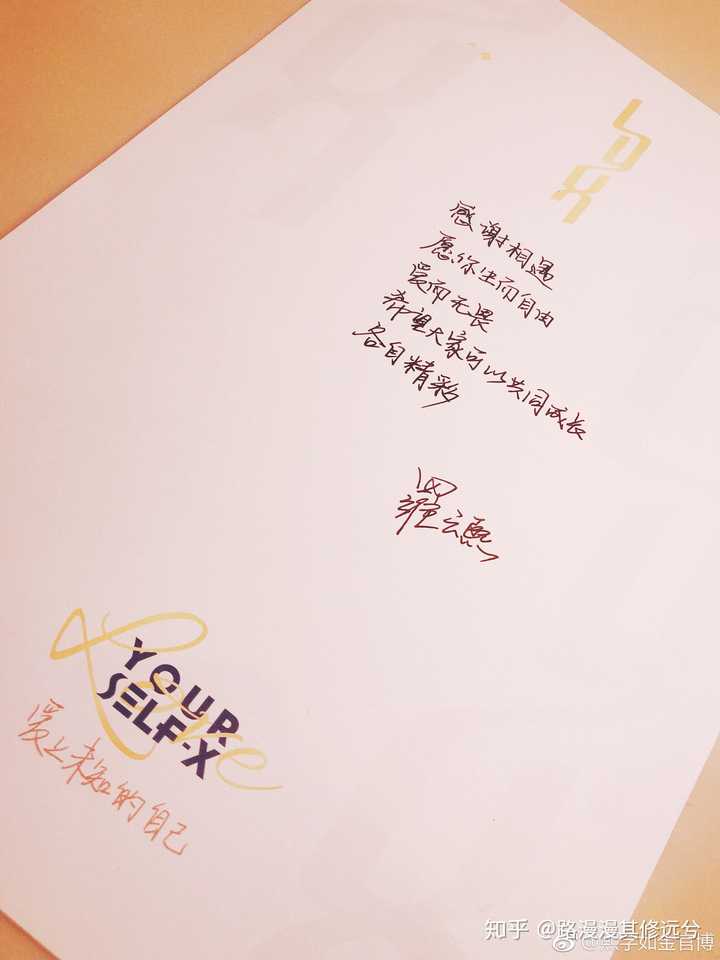 LYX
感谢相遇
愿你生而自由
爱而无畏
希望大家可以共同成长
各自精彩
罗云熙
Love
YOUR
SELF-X
爱上未知的自己
知乎 @路漫漫其修远兮
字如金官博